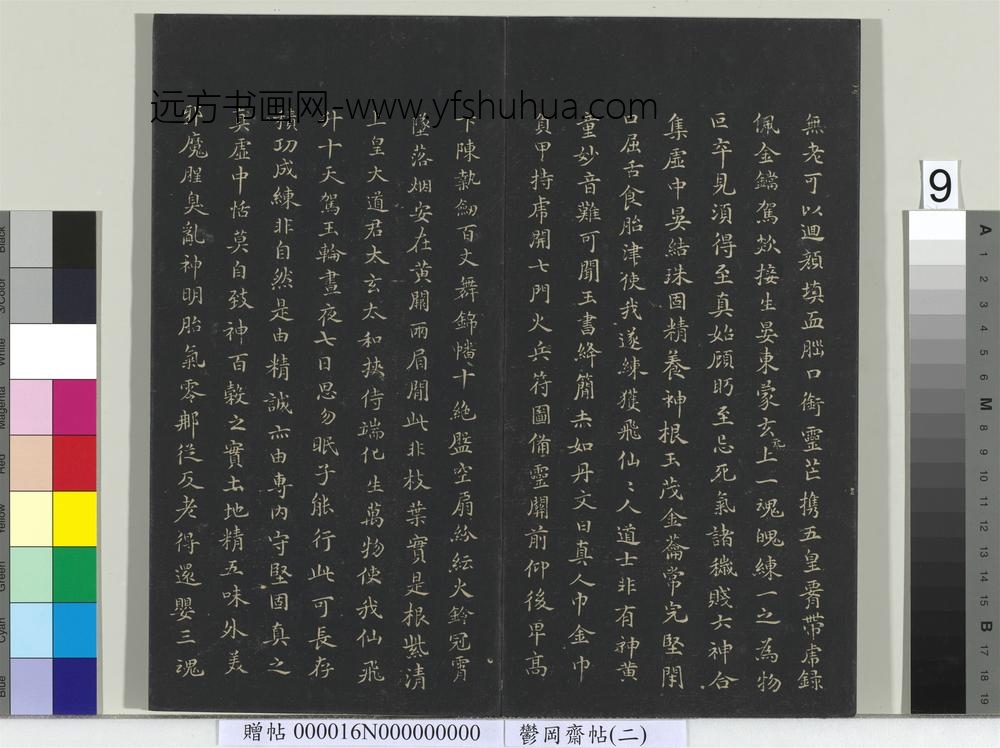 無老可以迴顏填血腦口銜靈芒攜五皇霄帶虎錄
佩金鐺駕欻接生晏東蒙玄元上一魂魄練一之為物
叵卒見須得至真始顧眄至忌死氣諸穢賤六神合
集虛中晏結珠固精養神根玉茂金蘥常完堅閑
口屈舌食胎津使我遂練獲飛仙〻人道士非有神黃
童妙音難可聞玉書絳簡赤如丹文曰真人巾金巾
負甲持虎開七門火兵符圖備靈關前仰後卑高
下陳執劒百丈舞錦幡十絕盤空扇紛紜火鈴冠霄
墜落烟安在黃闕兩眉間此非枝葉實是根紫清
上皇大道君太玄太和挾侍端化生萬物使我仙飛
升十天駕玉輪晝夜七日思勿眠子能行此可長存
積功成練非自然是由精誠亦由專內守堅固真之
真虛中恬莫自致神百穀之實土地精五味外美
邪魔腥臭亂神明胎氣零那從反老得還嬰三魂
远方书画网-www.yfshuhua.com
9
Black
3/Color
White
Magenta
Red
Yellow
Green
Cyan
Blue
A
1
2
3
4
5
6
M
8
9
10
11
12
13
14
15
B
17
18
19
贈帖 000016N000000000
鬱岡齋帖(二)